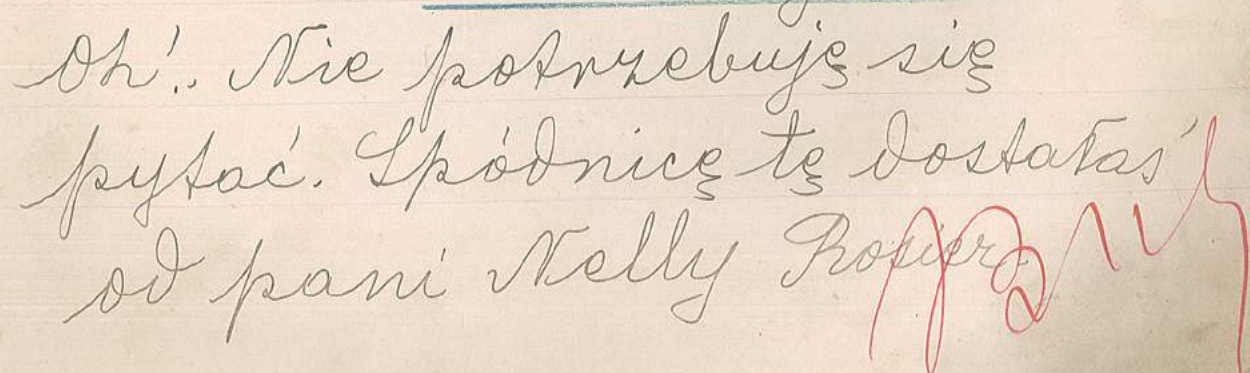 Oh!. Nie potrzebuję się
pytać. Spódnicę tę dostałaś
od pani Nelly Rosier.